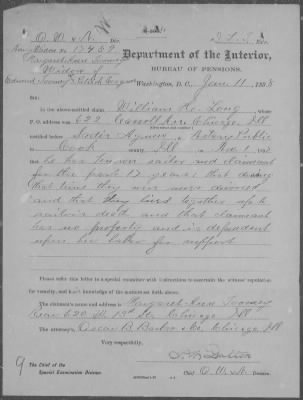 O. W. & N. Div.
Navy Widow No. 12469
Margaret Ann Toomey
Widow of
Edward Toomey
Department of the Interior,
BUREAU OF PENSIONS,
Washington, D. C., Jan. 11, 189
In the above-entitled claim William H. Long whose
P. O. address is 622 Carroll Ave. Chicago Ill
testified before Notary Public
Cook county, Ill 1, 189
he has known sailor and claimant
for the past 17 years that during
that time they were never divorced
and that they lived together up to
sailor's death and that claimant
has no property and is dependent
upon her labor for support
Please refer this letter to a special examiner with instructions to ascertain the witness' reputation
for veracity, and his knowledge of the matters set forth above.
The claimant's name and address is Margaret Ann Toomey
Rear 620 W 13th St., Chicago Ill
The attorney's, Oscar B. Chicago, Ill
Very respectfully,
The Chief of the
Special Examination Division.
Chief O. W. & N. Division.